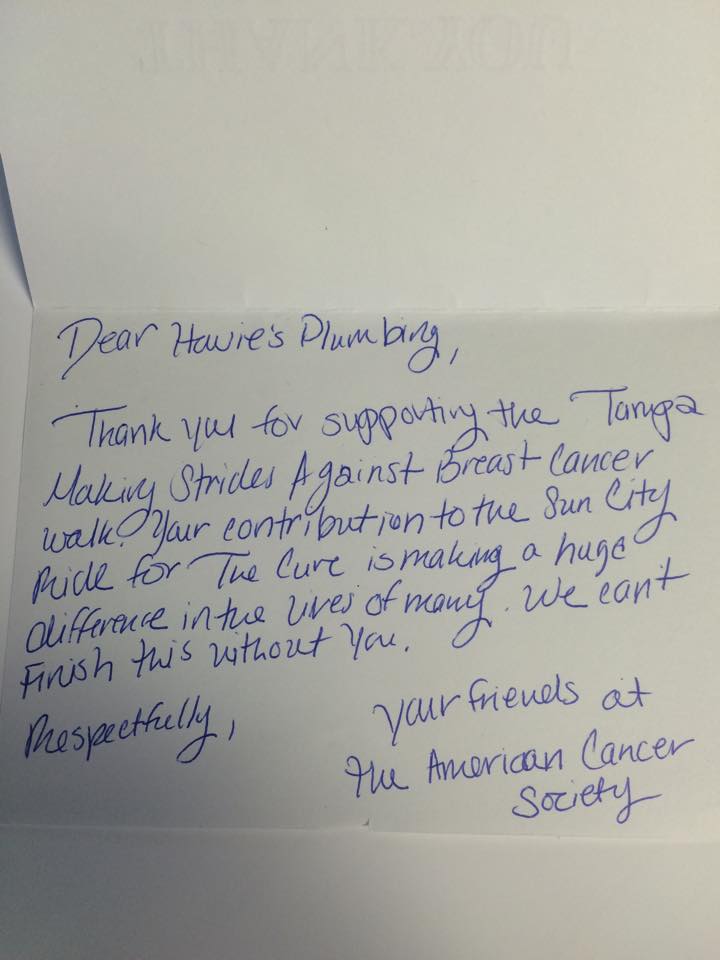 THANK YOU
Dear Howie's Plumbing,
Thank you for supporting the Tampa
Making Strides Against Breast Cancer
walk. Your contribution to the Sun City
Ride for The Cure is making a huge
difference in the lives of many. We can't
Finish this without you.
Respectfully,
your friends at
the American Cancer
Society